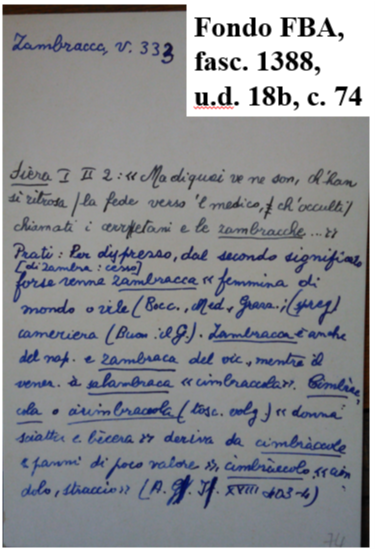 Zambracco, v. 333
Fondo FBA,
fasc. 1388,
u.d. 18b, c. 74
Fiera I II 2: «Ma di quei ve ne son, ch'han
sì ritrosa / la fede verso 'l medico, / ch'occulti /
chiamati i cerretani e le zambracche...»
Prati: Per dispresso, dal secondo significato
[di zambra: cesso]
forse venne zambracca «femmina di
mondo o vile (Bocc., Med., Grass.; (spreg)
cameriera (Buon. il G.). Zambracca è anche
del nap. e zambraca del vic., mentre il
venez. à salambraca «cimbraccola». Cimbràc-
cola o cirimbraccola (tosc. volg) «donna
sciatta e becera» deriva da cimbràccole
«panni di poco valore», cimbràccolo, «cion-
dolo, straccio» (A. G. I. XVIII 403-4)
74